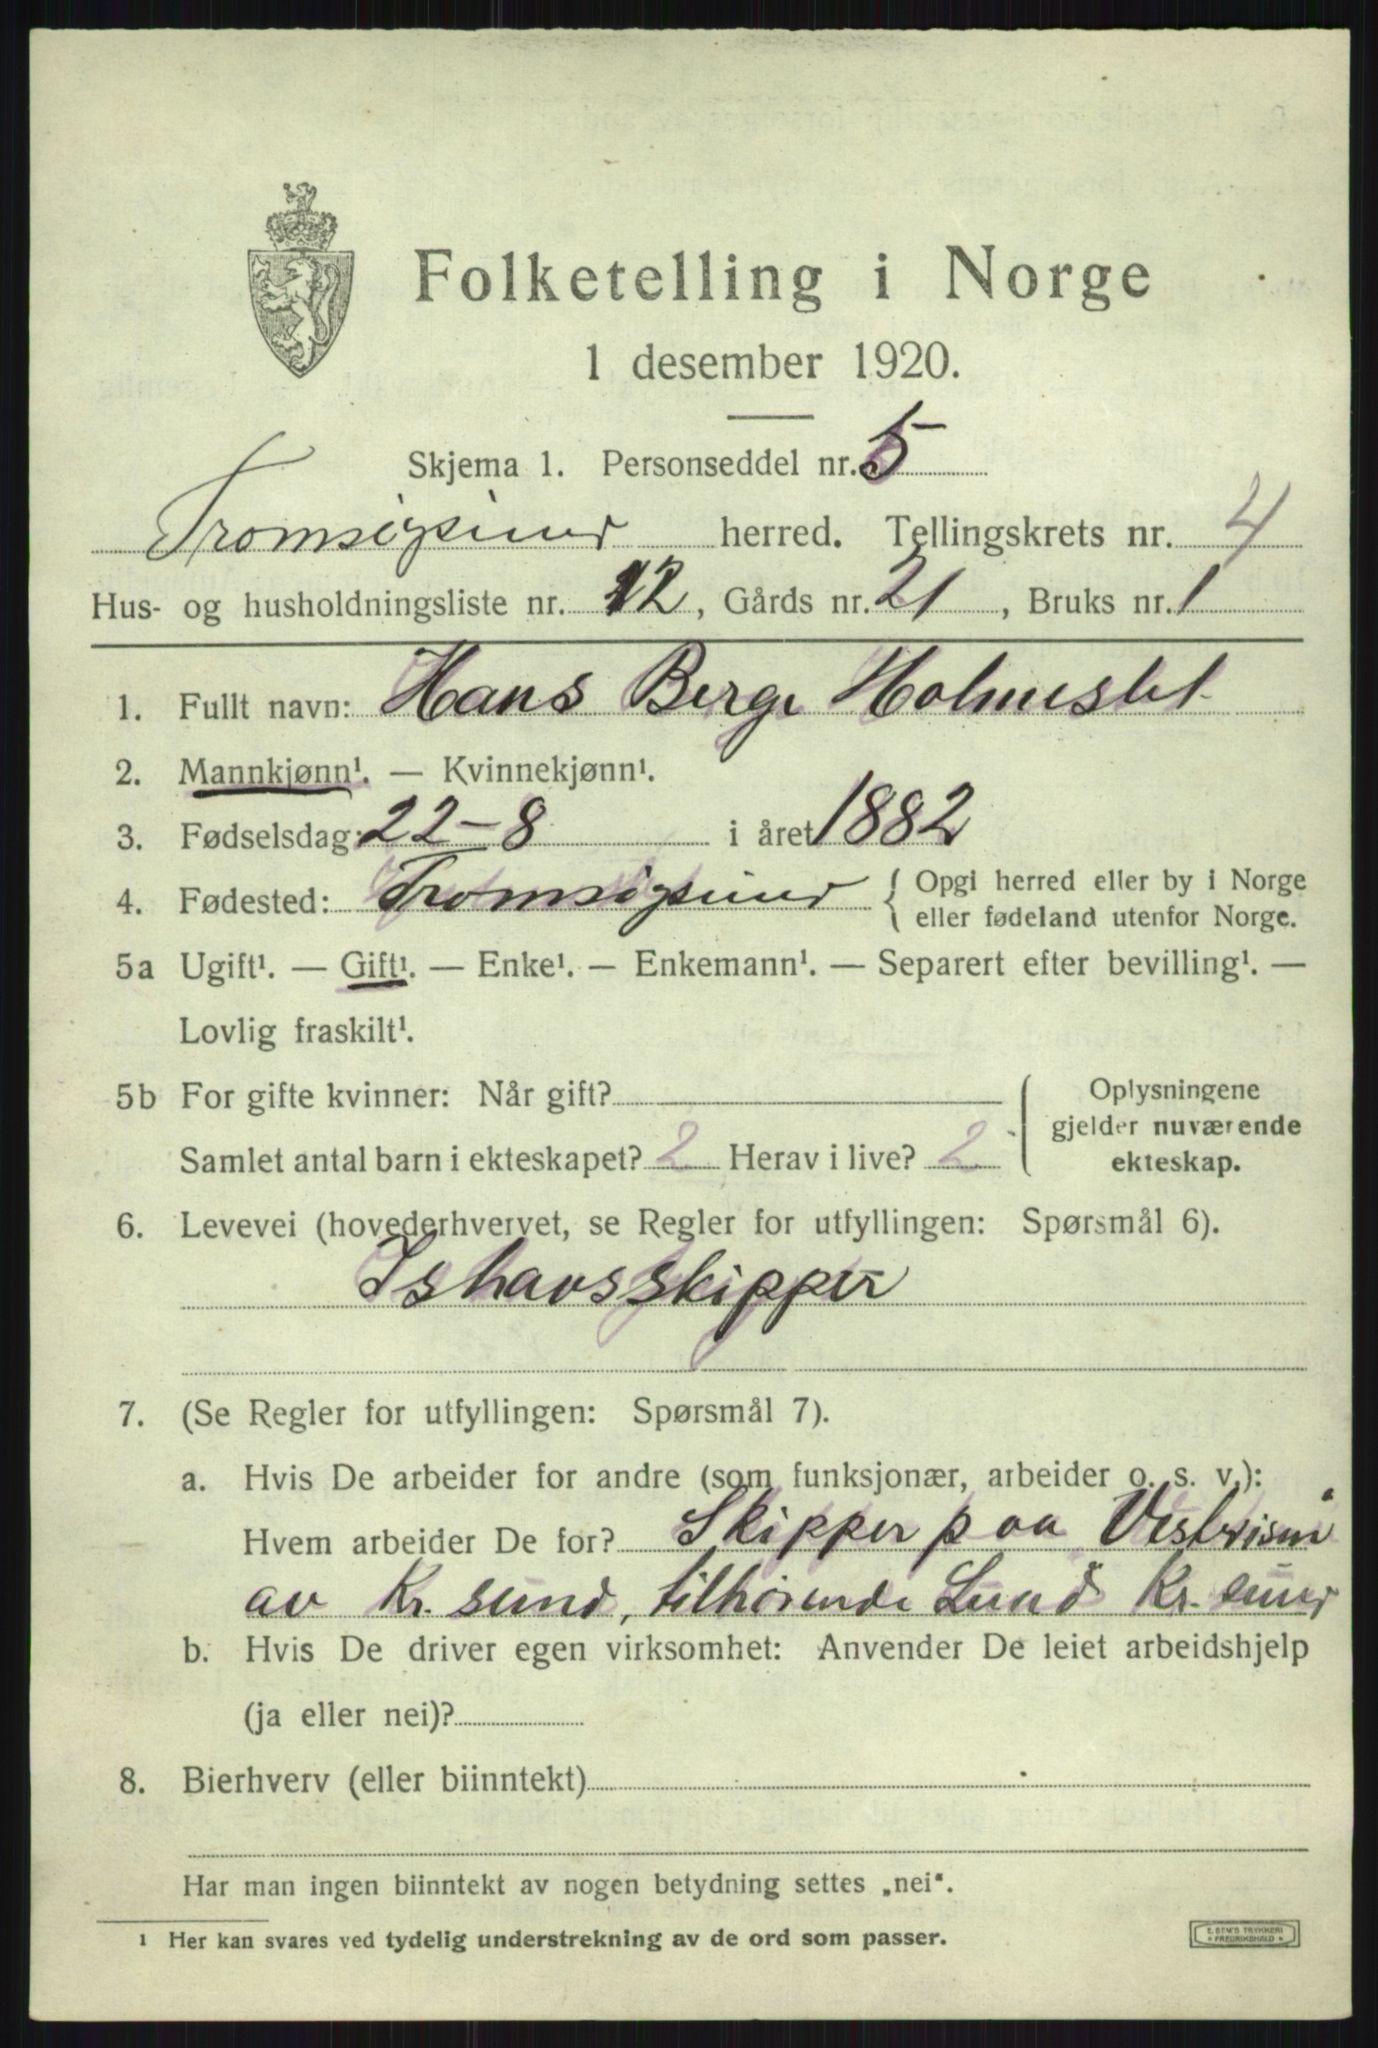 Folketelling i Norge
1 desember 1920.
Skjema 1. Personseddel nr. 5
Tromsøysund herred. Tellingskrets nr. 4
Hus- og husholdningsliste nr. 12, Gårds nr. 21, Bruks nr. 1
1. Fullt navn: Hans Berge Holmeslet
2. Mannkjønn¹. — Kvinnekjønn¹.
3. Fødselsdag: 22-8 i året 1882
4. Fødested: Tromsøysund { Opgi herred eller by i Norge
eller fødeland utenfor Norge.
5a Ugift¹. — Gift¹. — Enke¹. — Enkemann¹. — Separert efter bevilling¹. —
Lovlig fraskilt¹.
5b For gifte kvinner: Når gift?
Samlet antal barn i ekteskapet? 2 Herav i live? 2
Oplysningene
gjelder nuværende
ekteskap.
6. Levevei (hovederhvervet, se Regler for utfyllingen: Spørsmål 6).
Ishavsskipper
7. (Se Regler for utfyllingen: Spørsmål 7).
a. Hvis De arbeider for andre (som funksjonær, arbeider o. s. v.):
Hvem arbeider De for? Skipper paa
av Kr. sund, tilhørende Lund Kr. sund
b. Hvis De driver egen virksomhet: Anvender De leiet arbeidshjelp
(ja eller nei)?
8. Bierhverv (eller biinntekt)
Har man ingen biinntekt av nogen betydning settes „nei“.
¹ Her kan svares ved tydelig understrekning av de ord som passer.
E. SEM'S TRYKKERI
* FREDRIKSHALD *